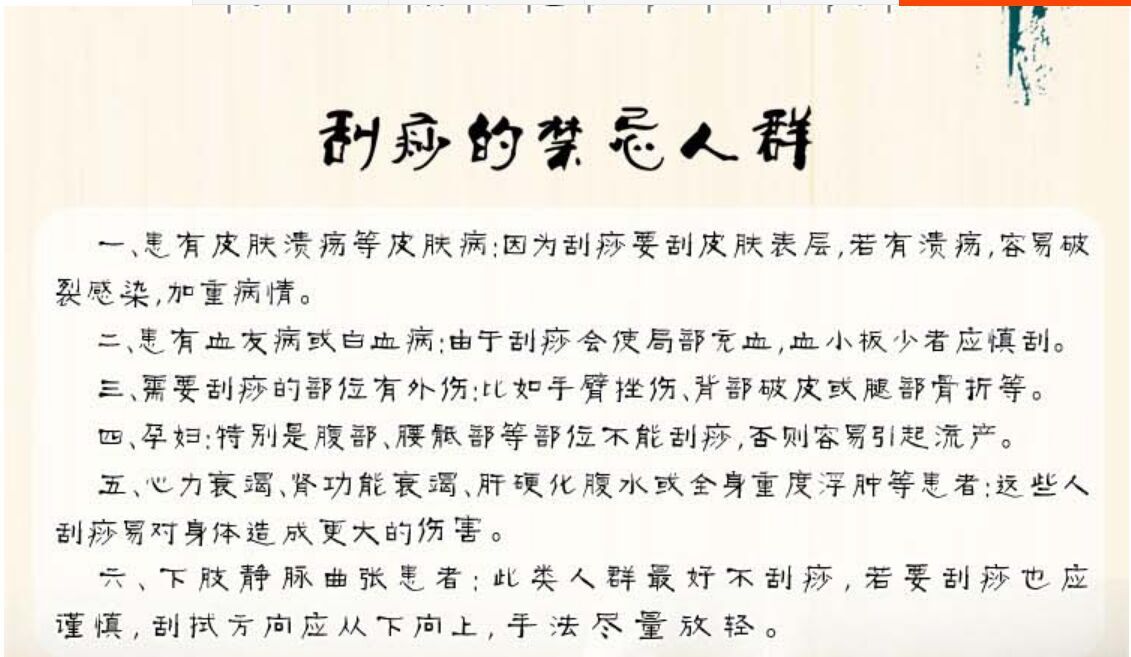 刮痧的禁忌人群
一、患有皮肤溃疡等皮肤病:因为刮痧要刮皮肤表层,若有溃疡,容易破
裂感染,加重病情。
二、患有血友病或白血病:由于刮痧会使局部充血,血小板少者应慎刮。
三、需要刮痧的部位有外伤:比如手臂挫伤、背部破皮或腿部骨折等。
四、孕妇:特别是腹部、腰骶部等部位不能刮痧,否则容易引起流产。
五、心力衰竭、肾功能衰竭、肝硬化腹水或全身重度浮肿等患者:这些人
刮痧易对身体造成更大的伤害。
六、下肢静脉曲张患者:此类人群最好不刮痧,若要刮痧也应
谨慎,刮拭方向应从下向上,手法尽量放轻。